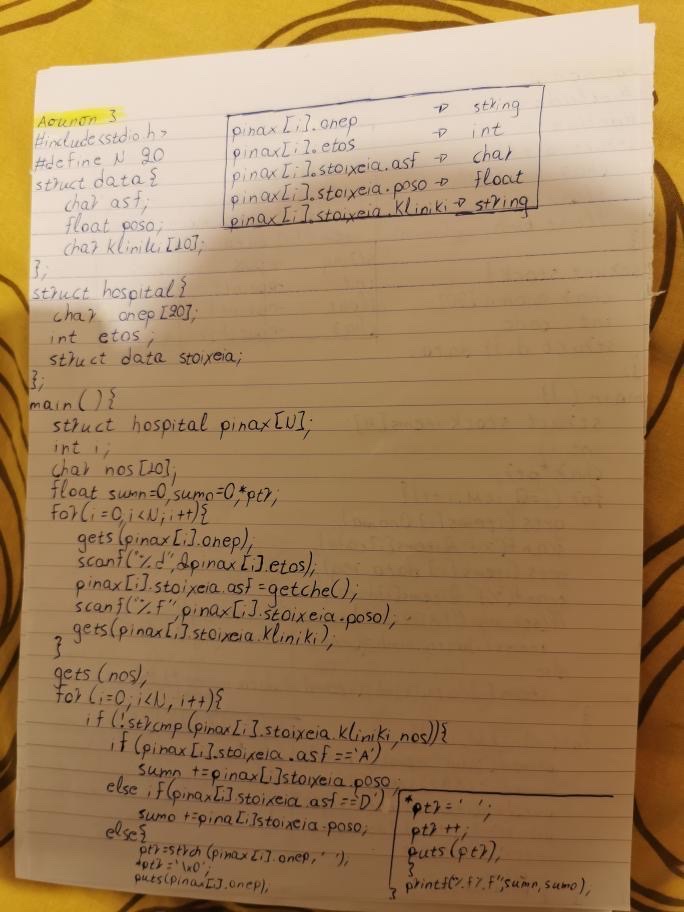 Άσκηση 3
#include<stdio.h>
#define N 20
struct data{
char asf;
float poso;
char kliniki[10];
};
struct hospital{
char onep[20];
int etos;
struct data stoixeia;
};
main(){
struct hospital pinax[N];
int i;
char nos[10];
float sumn=0,sumo=0,*ptr;
for(i=0;i<N;i++){
gets(pinax[i].onep);
scanf("%d",&pinax[i].etos);
pinax[i].stoixeia.asf=getche();
scanf("%f",pinax[i].stoixeia.poso);
gets(pinax[i].stoixeia.kliniki);
}
gets(nos);
for(i=0;i<N;i++){
if(!strcmp(pinax[i].stoixeia.kliniki,nos)){
if(pinax[i].stoixeia.asf=='A')
sumn+=pinax[i]stoixeia.poso;
else if(pinax[i].stoixeia.asf=='D')
sumo+=pina[i]stoixeia.poso;
else{
ptr=strch(pinax[i].onep,' ');
*ptr='\x0';
puts(pinax[i].onep);
*ptr=' ';
ptr++;
puts(ptr);
}
} printf("%f%f",sumn,sumo);
pinax[i].onep → string
pinax[i].etos → int
pinax[i].stoixeia.asf → char
pinax[i].stoixeia.poso → float
pinax[i].stoixeia.kliniki → string